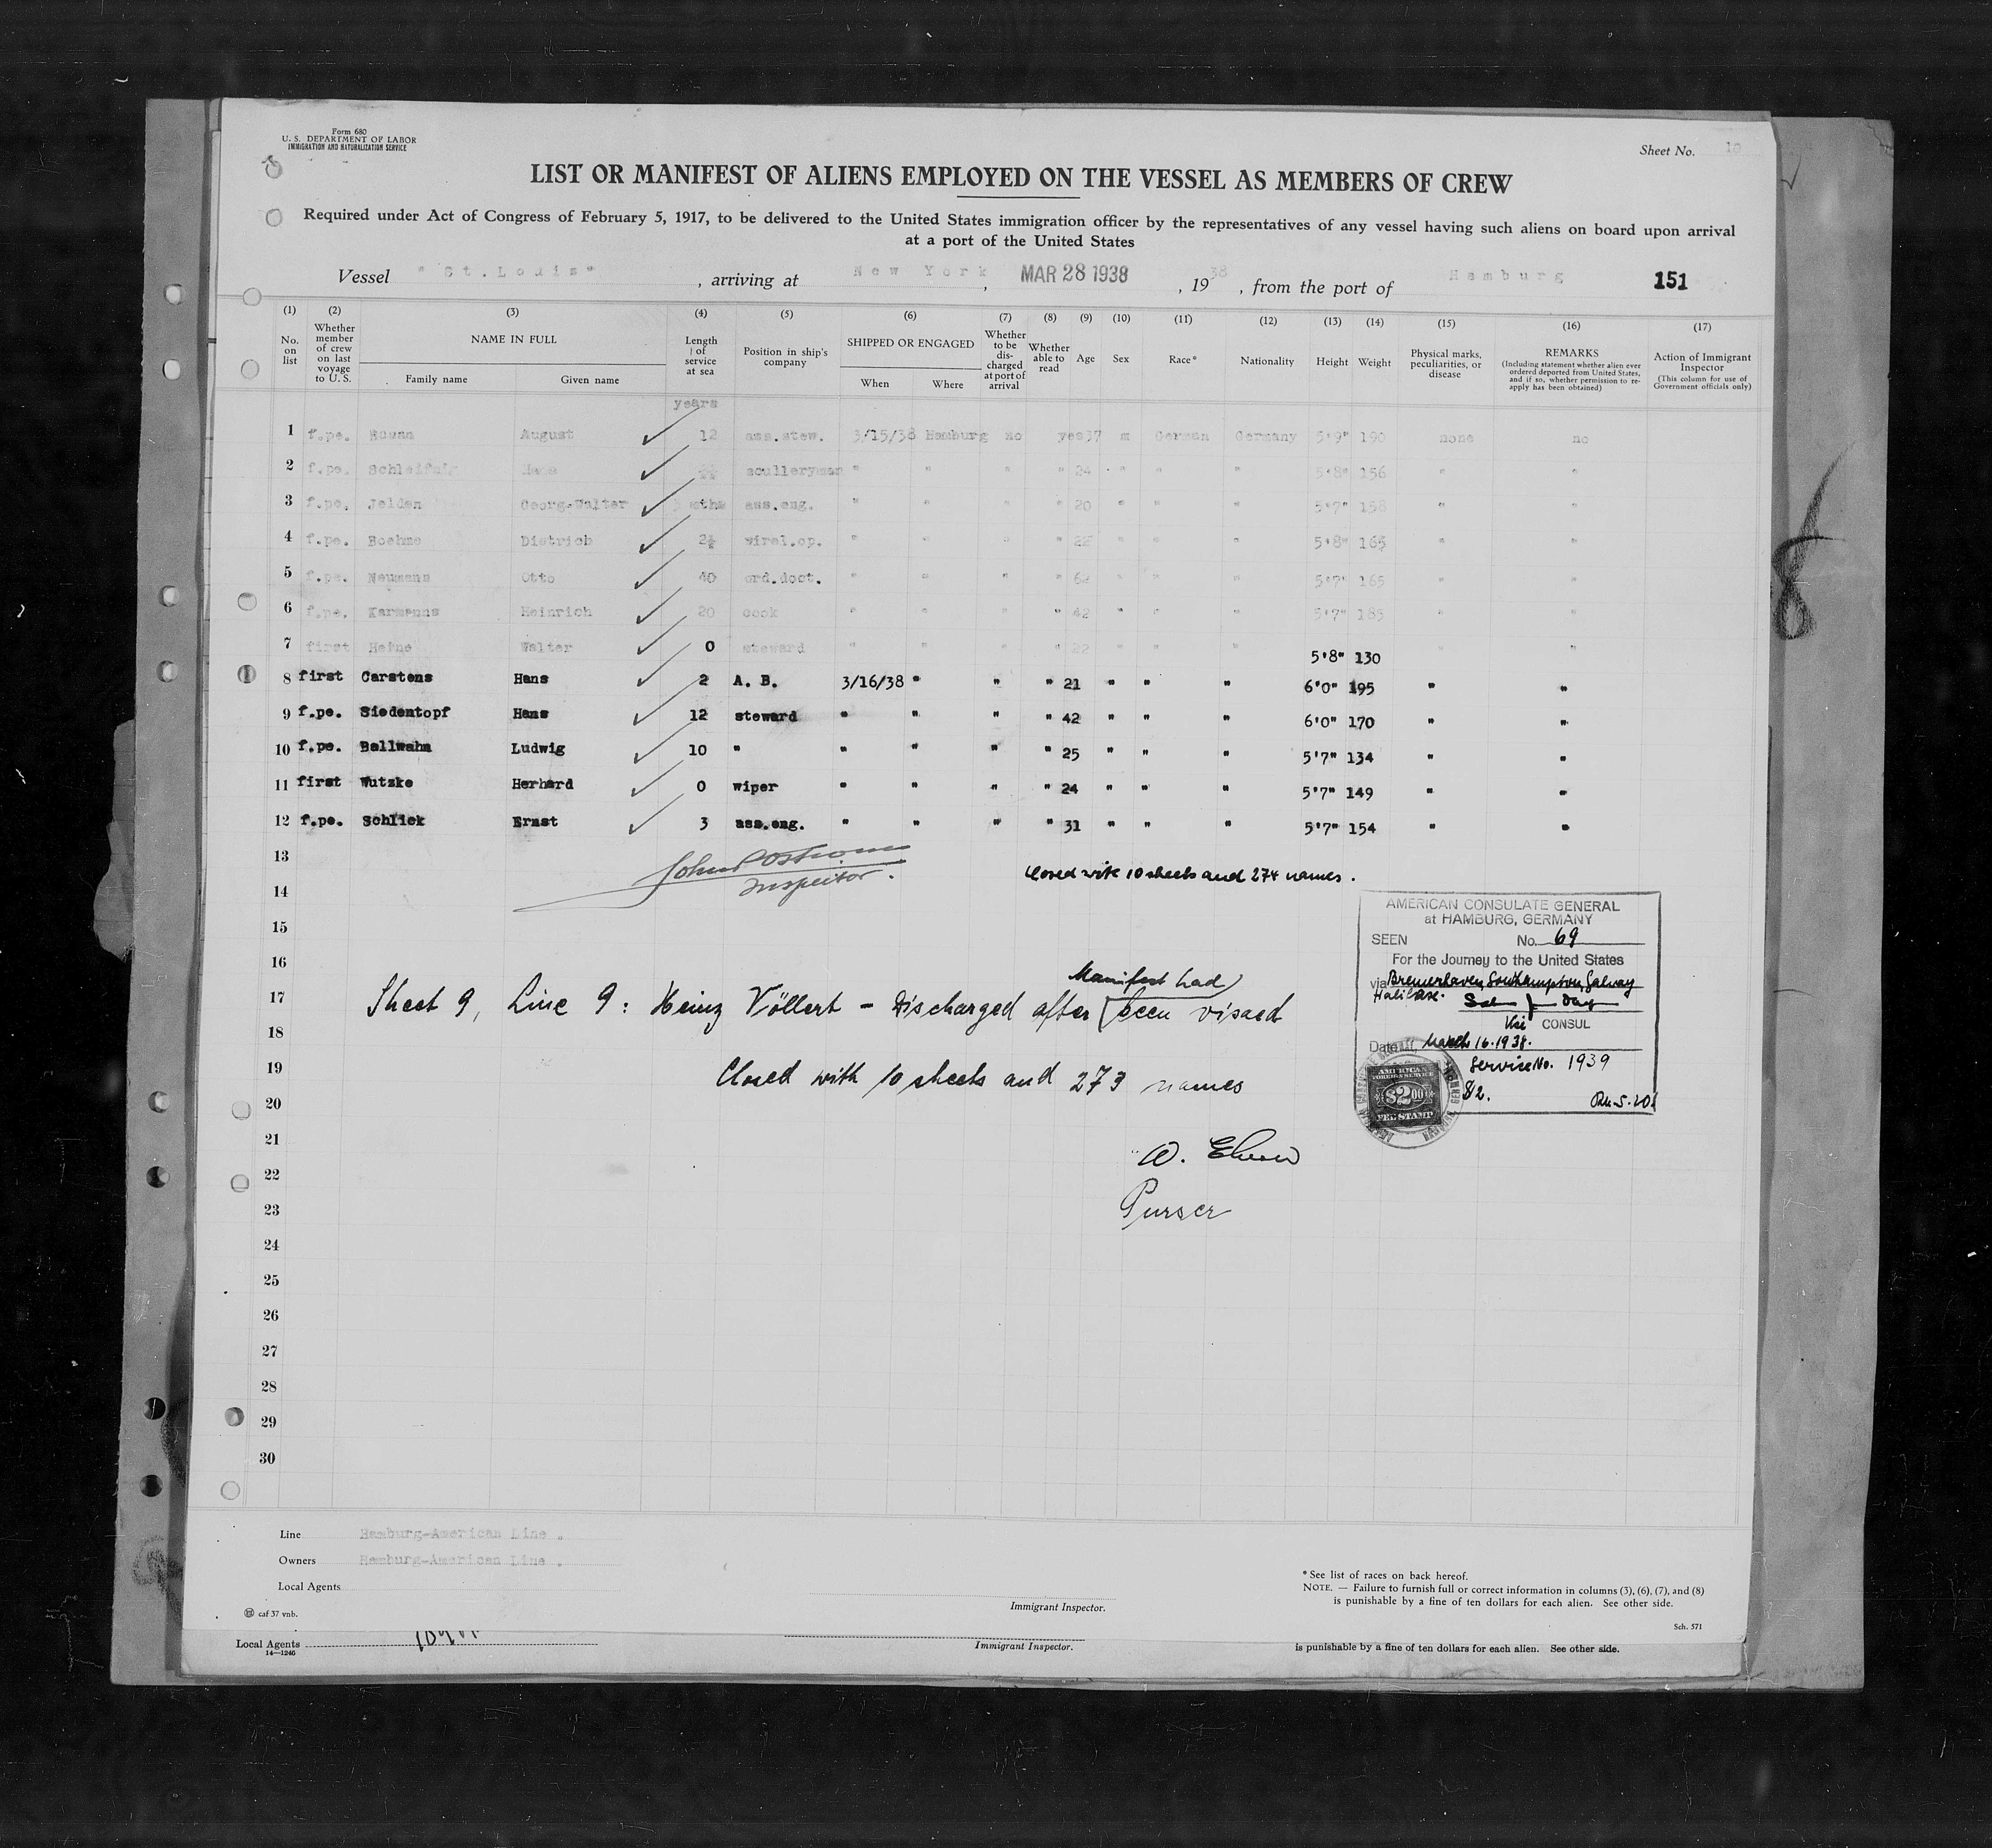 Form 680
U. S. DEPARTMENT OF LABOR
IMMIGRATION AND NATURALIZATION SERVICE
Sheet No. 10
LIST OR MANIFEST OF ALIENS EMPLOYED ON THE VESSEL AS MEMBERS OF CREW
Required under Act of Congress of February 5, 1917, to be delivered to the United States immigration officer by the representatives of any vessel having such aliens on board upon arrival
at a port of the United States
Vessel "St.Louis" , arriving at New York , MAR 28 1938 , 19 38 , from the port of Hamburg 151
(1) (2) (3) (4) (5) (6) (7) (8) (9) (10) (11) (12) (13) (14) (15) (16) (17)
No. on list
Whether member of crew on last voyage to U. S.
NAME IN FULL
Family name Given name
Length of service at sea
Position in ship's company
SHIPPED OR ENGAGED
When Where
Whether to be discharged at port of arrival
Whether able to read
Age Sex Race* Nationality Height Weight
Physical marks, peculiarities, or disease
REMARKS
(Including statement whether alien ever ordered deported from United States, and if so, whether permission to re-apply has been obtained)
Action of Immigrant Inspector
(This column for use of Government officials only)
years
1 f.pe. August 12 ass.stew. 3/15/38 Hamburg no yes 37 m German Germany 5'9" 190 none no
2 f.pe. Hans sculleryman " " " " 24 " " " 5'8" 156 " "
3 f.pe. Jelden Georg-Walter mths ass.eng. " " " " 20 " " " 5'7" 158 " "
4 f.pe. Boehme Dietrich 2½ wirel.op. " " " " 22 " " " 5'8" 165 " "
5 f.pe. Neumann Otto 40 ord.doct. " " " " 62 " " " 5'7" 165 " "
6 f.pe. Karmanns Heinrich 20 cook " " " " 42 " " " 5'7" 185 " "
7 first Heine Walter 0 steward " " " " 22 " " " 5'8" 130 " "
8 first Carstens Hans 2 A. B. 3/16/38 " " " 21 " " " 6'0" 195 " "
9 f.pe. Siedentopf Hans 12 steward " " " " 42 " " " 6'0" 170 " "
10 f.pe. Bellwahn Ludwig 10 " " " " " 25 " " " 5'7" 134 " "
11 first Wutzke Herhard 0 wiper " " " " 24 " " " 5'7" 149 " "
12 f.pe. Schliek Ernst 3 ass.eng. " " " " 31 " " " 5'7" 154 " "
13
John Ostrom
Inspector.
closed with 10 sheets and 274 names.
14
15
16
17
18
19
20
21
22
23
24
25
26
27
28
29
30
AMERICAN CONSULATE GENERAL
at HAMBURG, GERMANY
SEEN No. 69
For the Journey to the United States
via Bremerhaven, Southampton, Galway
Halifax.
Vice CONSUL
Date March 16.1938.
Service No. 1939
$2.
AMERICAN
FOREIGN SERVICE
$2.00
FEE STAMP
Manifest had
Sheet 9, Line 9: Heinz Völlert - Discharged after been visaed
Closed with 10 sheets and 273 names
Purser
Line Hamburg-American Line .
Owners Hamburg-American Line .
Local Agents
Immigrant Inspector.
caf 37 vnb.
* See list of races on back hereof.
NOTE. — Failure to furnish full or correct information in columns (3), (6), (7), and (8)
is punishable by a fine of ten dollars for each alien. See other side.
Sch. 571
Local Agents
14—1246
Immigrant Inspector.
is punishable by a fine of ten dollars for each alien. See other side.